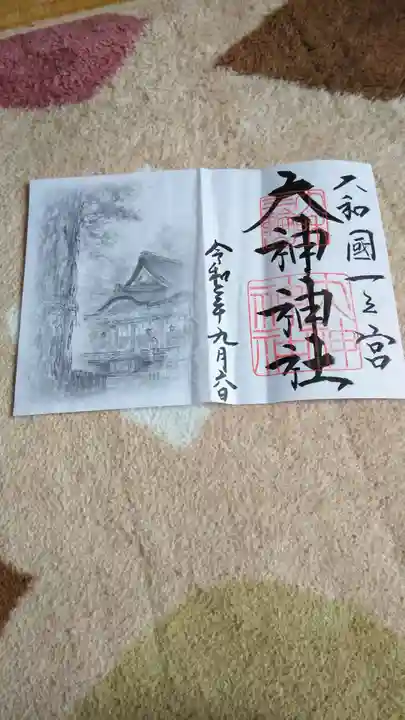 大和國一之宮
大神神社
令和三年九月六日